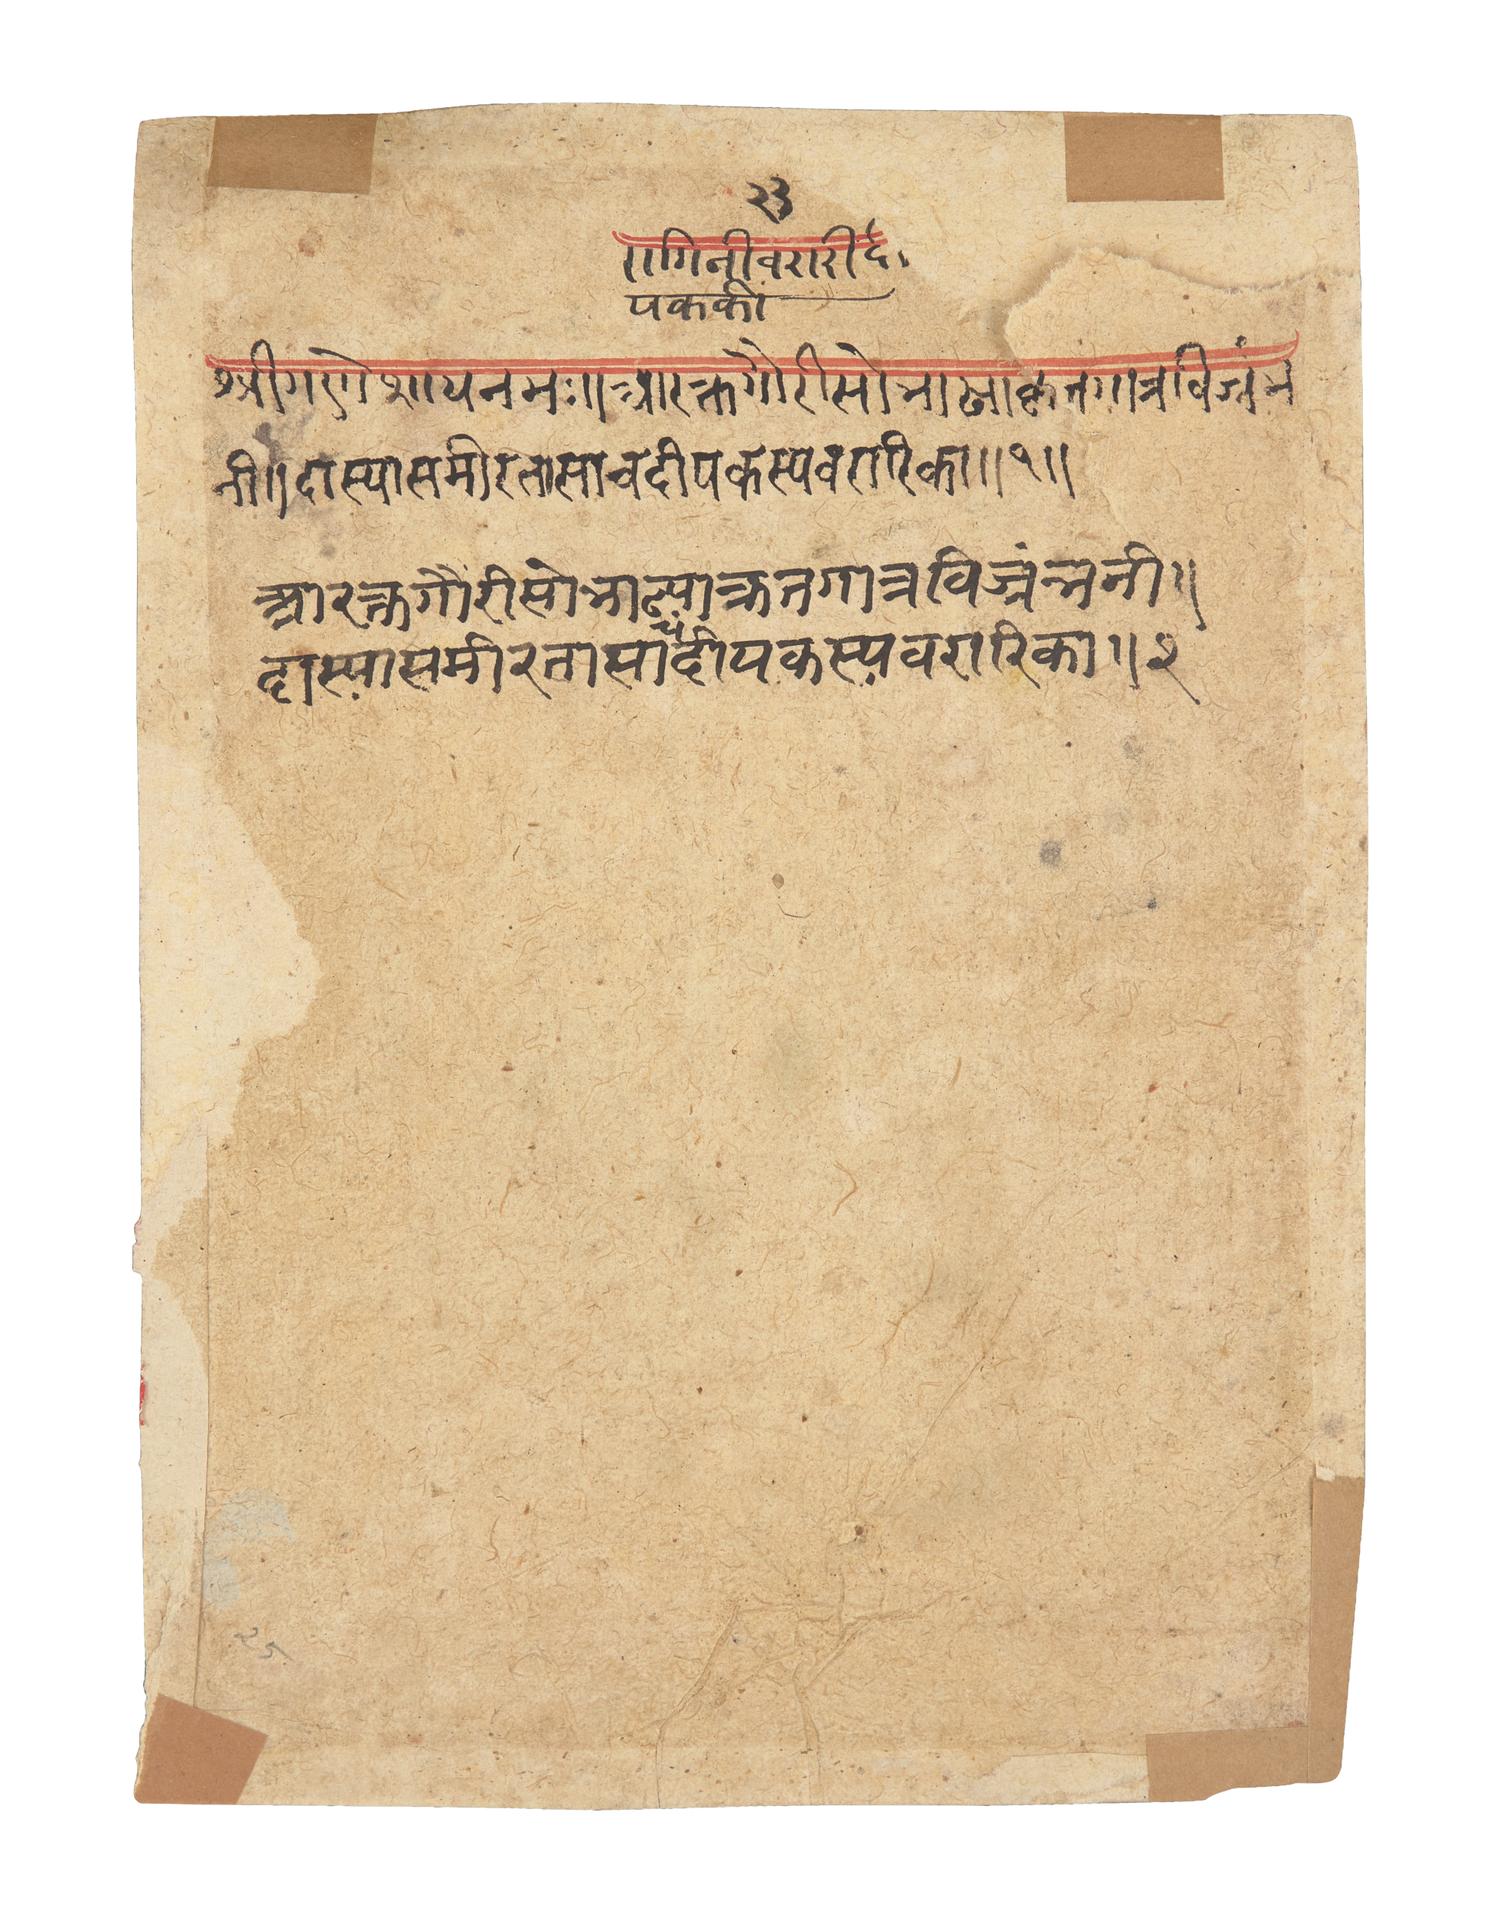 २३
रागिनी वरारी दी
पक की
श्रीगणेशाय नमः॥ आरक्तगौरी सो गात्रविजृंभ
नी॥ दास्या समीरता सा च दीपकस्य वरारिका॥१॥
आरक्तगौरी सो गात्रविजृंभनी॥
दास्या समीरता सा च दीपकस्य वरारिका॥२